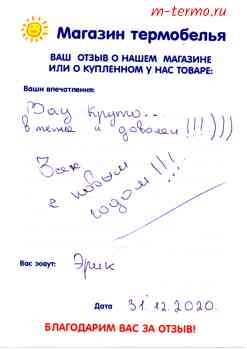 m-termo.ru
Магазин термобелья
ВАШ ОТЗЫВ О НАШЕМ МАГАЗИНЕ
ИЛИ О КУПЛЕННОМ У НАС ТОВАРЕ:
Ваши впечатления:
Вау круто..
в тепле и доволен!!!)))
Всех
с новым
годом!!!
Вас зовут: Эрик
Дата 31.12.2020.
БЛАГОДАРИМ ВАС ЗА ОТЗЫВ!